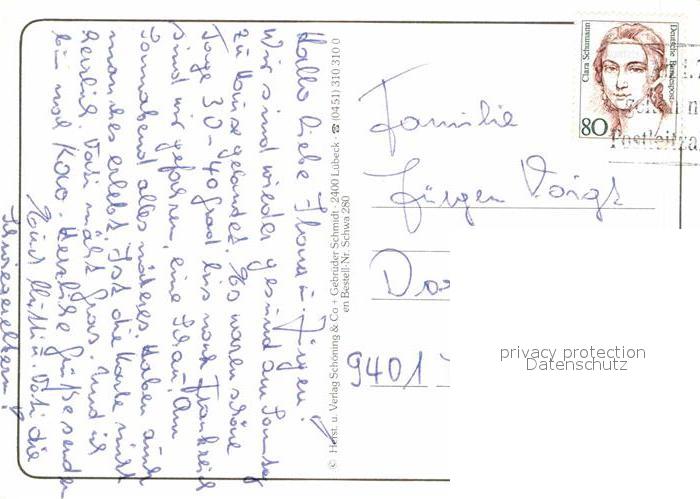 Hallo liebe Ilona u. Jürgen!
Wir sind wieder gesund am Sonntag
zu Hause gelandet. Es waren schöne
Tage 30-40 Grad bis nach Frankreich
sind wir gefahren, eine Schau! Am
Sonnabend alles näheres. Haben auch
manches erlebt. Ist die Karte nicht
herrlich. Vati mäht Gras. Und ich
bin mal Kao. Herzliche Grüße senden
Mutti u. Vati die
Schwiegereltern!
© Horst. u. Verlag Schöning & Co + Gebrüder Schmidt · 2400 Lübeck · ☎ (0451) 310 310 0
en Bestell-Nr. Schwa 280
Clara Schumann
Deutsche Bundespost
80
Postleitza
Familie
Jürgen Voigt
9401
privacy protection
Datenschutz